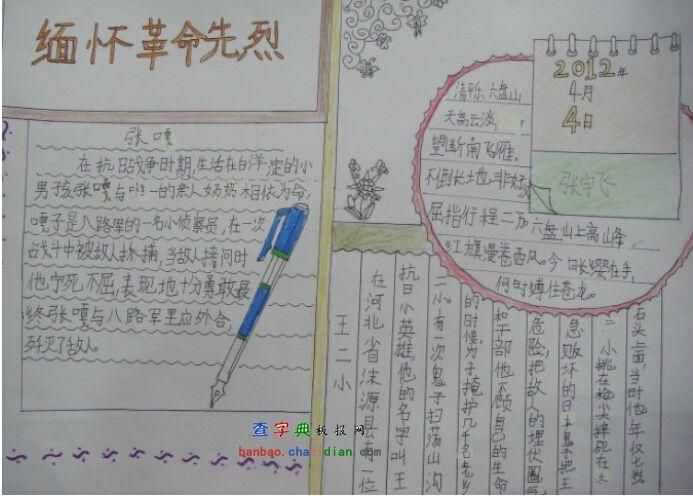 缅怀革命先烈
张嘎
在抗日战争时期,生活在白洋淀的小
男孩张嘎与唯一的亲人奶奶相依为命,
嘎子是八路军的一名小侦察员,在一次
战斗中被敌人抓捕,当敌人拷问时
他宁死不屈,表现地十分勇敢最
终张嘎与八路军里应外合,
歼灭了敌人。
2012年
4月
4日
张宇飞
清平乐 六盘山
天高云淡,
望断南飞雁。
不到长地非好汉
屈指行程二万六盘山上高山峰
红旗漫卷西风。今日长缨在手,
何时缚住苍龙。
王二小
在河北省涞源县有一位
抗日小英雄,他的名字叫王
二小有一次鬼子扫荡山沟
的时候,为了掩护几千名老乡
和干部他不顾自己的生命
危险,把敌人的埋伏圈
急败坏的日本鬼子把王
二小挑在枪尖摔死在大
石头上面,当时他年仅七岁
查字典板报网
banbao.chazidian.com